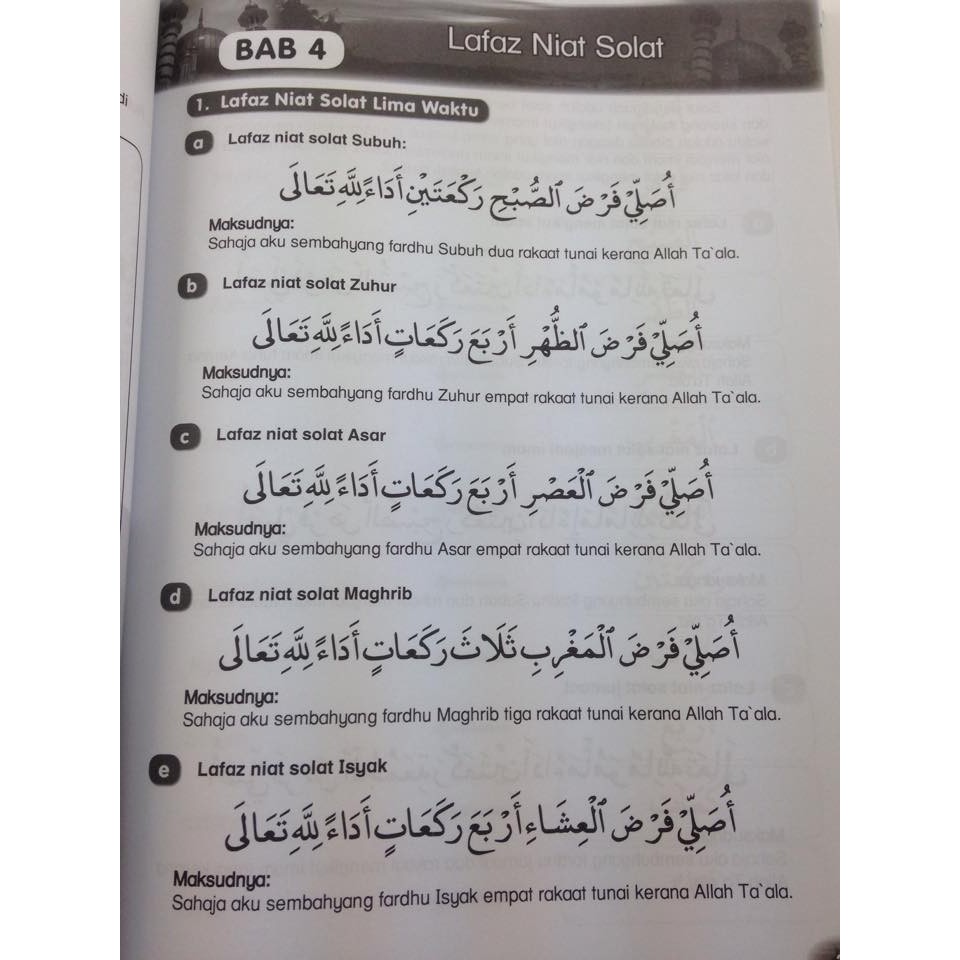 BAB 4
Lafaz Niat Solat
1. Lafaz Niat Solat Lima Waktu
a Lafaz niat solat Subuh:
أُصَلِّيْ فَرْضَ ٱلصُّبْحِ رَكْعَتَيْنِ أَدَاءً لِلَّهِ تَعَالَى
Maksudnya:
Sahaja aku sembahyang fardhu Subuh dua rakaat tunai kerana Allah Ta`ala.
b Lafaz niat solat Zuhur
أُصَلِّيْ فَرْضَ ٱلظُّهْرِ أَرْبَعَ رَكَعَاتٍ أَدَاءً لِلَّهِ تَعَالَى
Maksudnya:
Sahaja aku sembahyang fardhu Zuhur empat rakaat tunai kerana Allah Ta`ala.
c Lafaz niat solat Asar
أُصَلِّيْ فَرْضَ ٱلْعَصْرِ أَرْبَعَ رَكَعَاتٍ أَدَاءً لِلَّهِ تَعَالَى
Maksudnya:
Sahaja aku sembahyang fardhu Asar empat rakaat tunai kerana Allah Ta`ala.
d Lafaz niat solat Maghrib
أُصَلِّيْ فَرْضَ ٱلْمَغْرِبِ ثَلَاثَ رَكَعَاتٍ أَدَاءً لِلَّهِ تَعَالَى
Maksudnya:
Sahaja aku sembahyang fardhu Maghrib tiga rakaat tunai kerana Allah Ta`ala.
e Lafaz niat solat Isyak
أُصَلِّيْ فَرْضَ ٱلْعِشَاءِ أَرْبَعَ رَكَعَاتٍ أَدَاءً لِلَّهِ تَعَالَى
Maksudnya:
Sahaja aku sembahyang fardhu Isyak empat rakaat tunai kerana Allah Ta`ala.